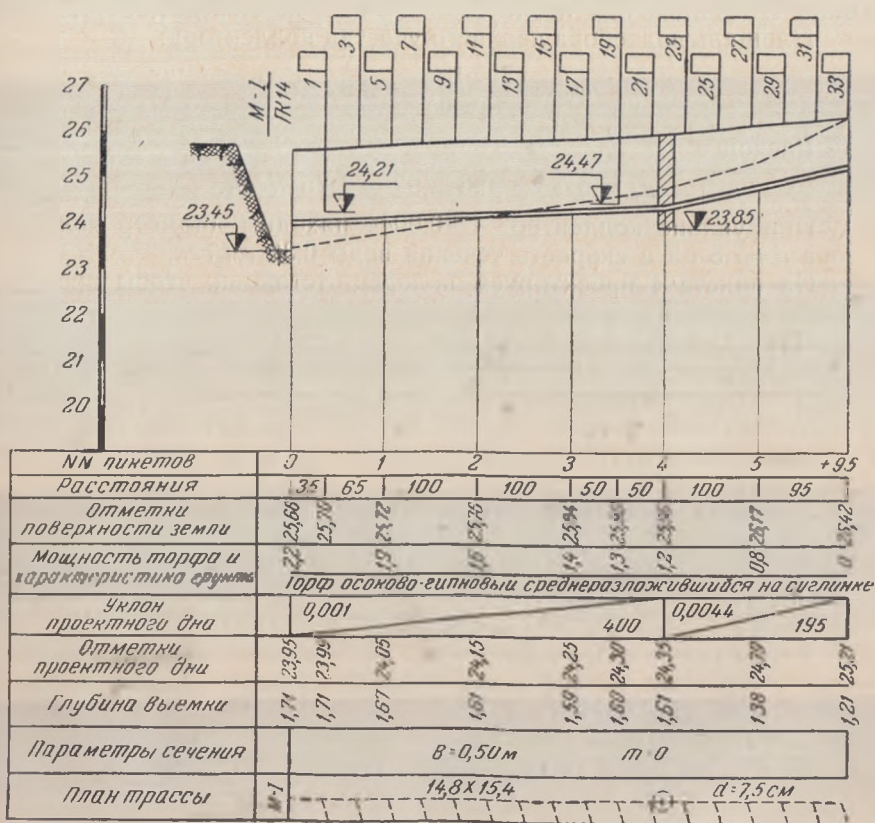 3 7 11 15 19 23 27 31
1 5 9 13 17 21 25 29 33
М-1
ПК14
27
26
25
24
23
22
21
20
24,21
24,47
23,45
23,85
NN пикетов 0 1 2 3 4 5 +95
Расстояния 35 65 100 100 50 50 100 95
Отметки поверхности земли 25,66 25,70 25,72 25,76 25,84 25,96 26,17 26,42
Мощность торфа и характеристика грунта 2,2 1,9 1,6 1,4 1,3 1,2 0,8 0
Торф осоково-гипновый среднеразложившийся на суглинке
Уклон проектного дна 0,001 400 0,0044 195
Отметки проектного дни 23,95 23,99 24,05 24,15 24,25 24,30 24,35 24,79 25,21
Глубина выемки 1,71 1,71 1,67 1,61 1,59 1,60 1,61 1,38 1,21
Параметры сечения В=0,50м m=0
План трассы М-1 14,8х15,4 d=7,5см